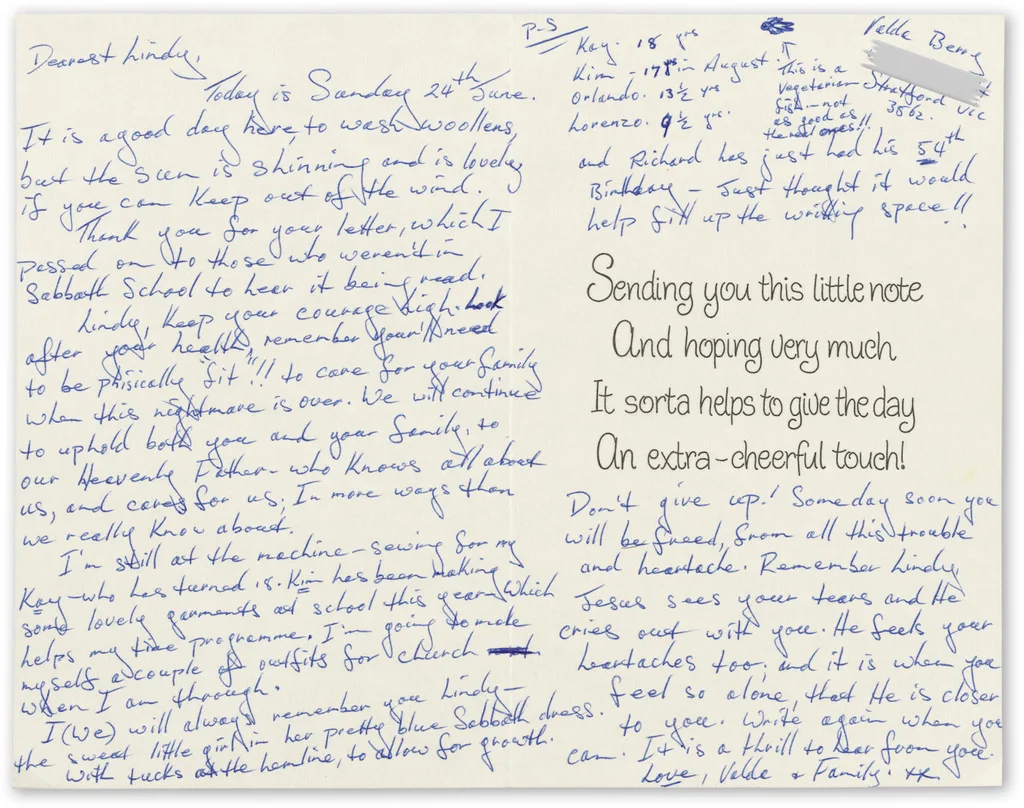 Dearest Lindy,
Today is Sunday 24th June.
It is a good day here, to wash woollens,
but the sun is shinning and is lovely
if you can keep out of the wind.
Thank you for your letter, which I
passed on to those who weren't in
Sabbath School to hear it being read.
Lindy, keep your courage high. look
after your health, remember your'll need
to be phisically "fit"!! to care for your family
when this nightmare is over. We will continue
to uphold both you and your family, to
our Heavenly Father - who knows all about
us, and cares for us; In more ways than
we really know about.
I'm still at the machine - sewing for my
Kay - who has turned 18. Kim has been making
some lovely garments at school this year which
helps my time programme. I'm going to make
myself a couple of outfits for church
when I am through.
I (We) will always remember you Lindy -
the sweet little girl in her pretty blue Sabbath dress.
with tucks at the hemline, to allow for growth.
P-S
Kay. 18 yrs
Kim - 17 yrs in August.
Orlando. 13½ yrs
Lorenzo. 9½ yrs.
This is a
vegetarian
fish - not
as good as
the real ones!!
Valda Berry
Stratford Vic
3862.
and Richard has just had his 54th
Birthday - Just thought it would
help fill up the writing space!!
Sending you this little note
And hoping very much
It sorta helps to give the day
An extra-cheerful touch!
Don't give up! Someday soon you
will be freed, from all this trouble
and heartache. Remember Lindy
Jesus sees your tears and He
cries out with you. He feels your
heartaches too; and it is when you
feel so alone, that He is closer
to you. Write again when you
can. It is a thrill to hear from you.
Love, Valda & Family. xx